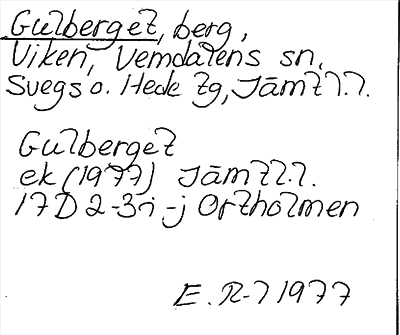 Gulberget, berg,
Viken, Vemdalens sn,
Svegs o. Hede tg, Jämtl.l.
Gulberget
ek (1977) Jämtl.l.
17D 2-3i-j Ortholmen
E. R-l 1977